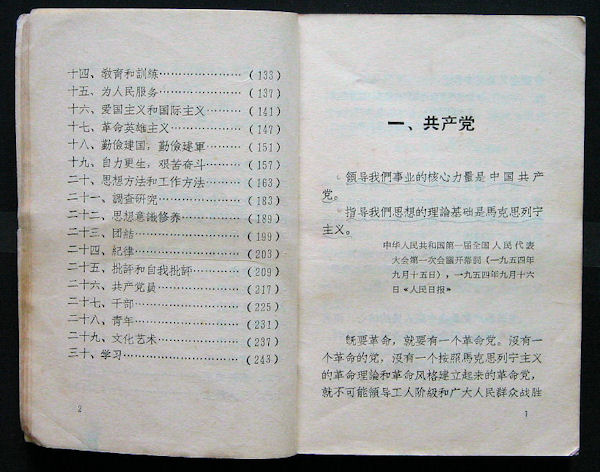 十四、教育和訓練……………(133)
十五、为人民服务……………(137)
十六、爱国主义和国际主义……(141)
十七、革命英雄主义…………(147)
十八、勤儉建国，勤儉建軍……(151)
十九、自力更生，艰苦奋斗……(157)
二十、思想方法和工作方法……(163)
二十一、調查研究……………(183)
二十二、思想意識修养…………(189)
二十三、团結…………………(199)
二十四、紀律…………………(203)
二十五、批評和自我批評………(209)
二十六、共产党員……………(217)
二十七、干部…………………(225)
二十八、青年…………………(231)
二十九、文化艺术……………(237)
三十、学习……………………(243)
2
一、共产党
領导我們事业的核心力量是中国共产
党。
指导我們思想的理論基础是馬克思列宁
主义。
中华人民共和国第一届全国人民代表
大会第一次会議开幕詞（一九五四年
九月十五日），一九五四年九月十六
日《人民日报》
旣要革命，就要有一个革命党。沒有一
个革命的党，沒有一个按照馬克思列宁主义
的革命理論和革命风格建立起来的革命党，
就不可能領导工人阶級和广大人民群众战胜
1